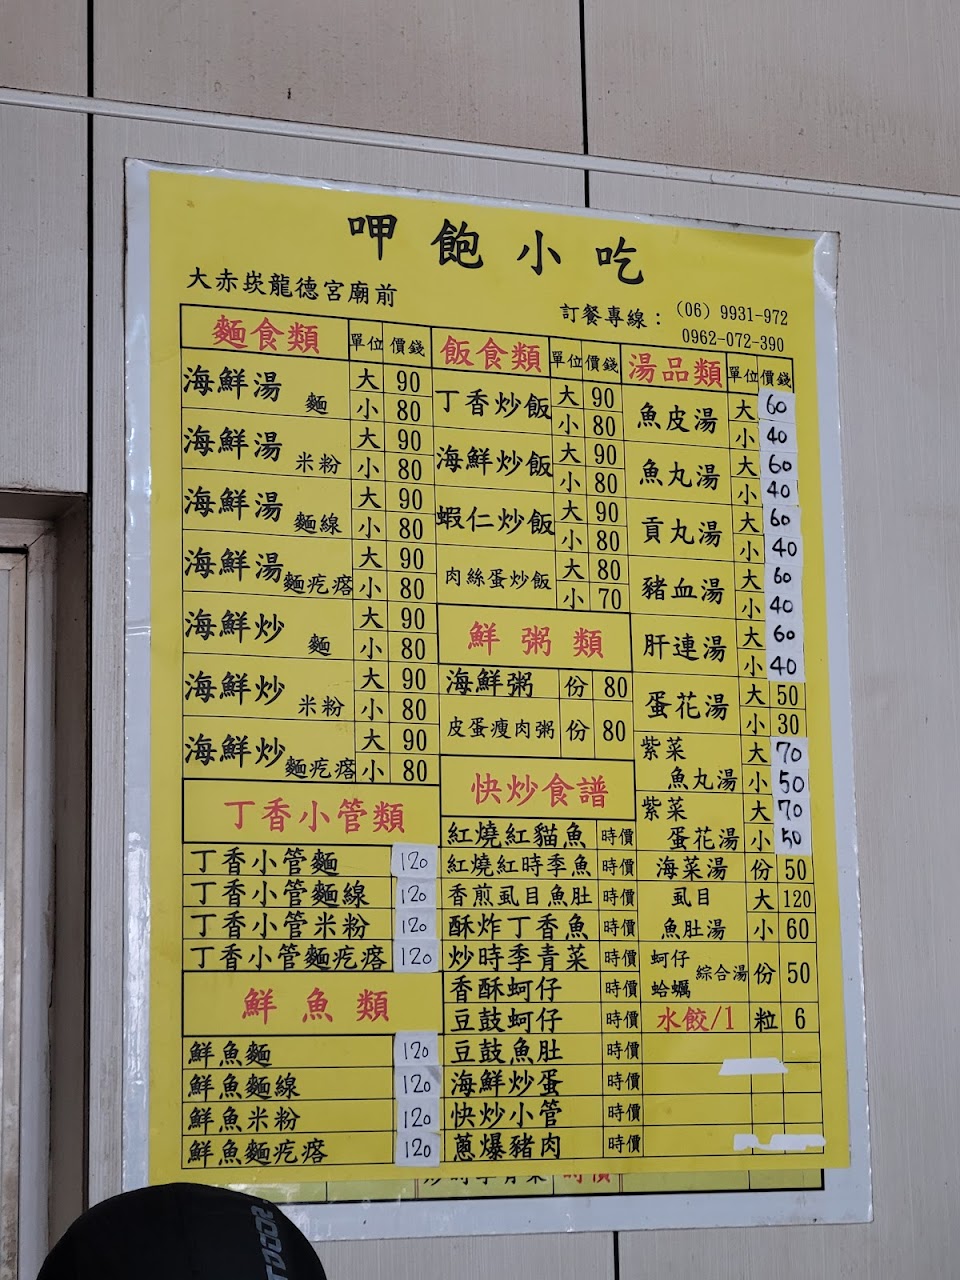 呷飽小吃
大赤崁龍德宮廟前
訂餐專線：(06) 9931-972
0962-072-390
麵食類 單位 價錢
海鮮湯 麵 大 90 小 80
海鮮湯 米粉 大 90 小 80
海鮮湯 麵線 大 90 小 80
海鮮湯 麵疙瘩 大 90 小 80
海鮮炒 麵 大 90 小 80
海鮮炒 米粉 大 90 小 80
海鮮炒 麵疙瘩 大 90 小 80
丁香小管類
丁香小管麵 120
丁香小管麵線 120
丁香小管米粉 120
丁香小管麵疙瘩 120
鮮魚類
鮮魚麵 120
鮮魚麵線 120
鮮魚米粉 120
鮮魚麵疙瘩 120
飯食類 單位 價錢
丁香炒飯 大 90 小 80
海鮮炒飯 大 90 小 80
蝦仁炒飯 大 90 小 80
肉絲蛋炒飯 大 80 小 70
鮮粥類
海鮮粥 份 80
皮蛋瘦肉粥 份 80
快炒食譜
紅燒紅貓魚 時價
紅燒紅時季魚 時價
香煎虱目魚肚 時價
酥炸丁香魚 時價
炒時季青菜 時價
香酥蚵仔 時價
豆鼓蚵仔 時價
豆鼓魚肚 時價
海鮮炒蛋 時價
快炒小管 時價
蔥爆豬肉 時價
炒時季青菜 時價
湯品類 單位 價錢
魚皮湯 大 60 小 40
魚丸湯 大 60 小 40
貢丸湯 大 60 小 40
豬血湯 大 60 小 40
肝連湯 大 60 小 40
蛋花湯 大 50 小 30
紫菜魚丸湯 大 70 小 50
紫菜蛋花湯 大 70 小 50
海菜湯 份 50
虱目魚肚湯 大 120 小 60
蚵仔蛤蠣綜合湯 份 50
水餃/1 粒 6